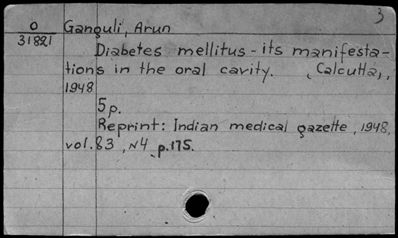 3
O
31821
Ganguli, Arun
Diabetes mellitus - its manifesta-
tions in the oral cavity. (Calcutta),
1948
5p.
Reprint: Indian medical gazette, 1948,
vol. 83, N4, p. 175.